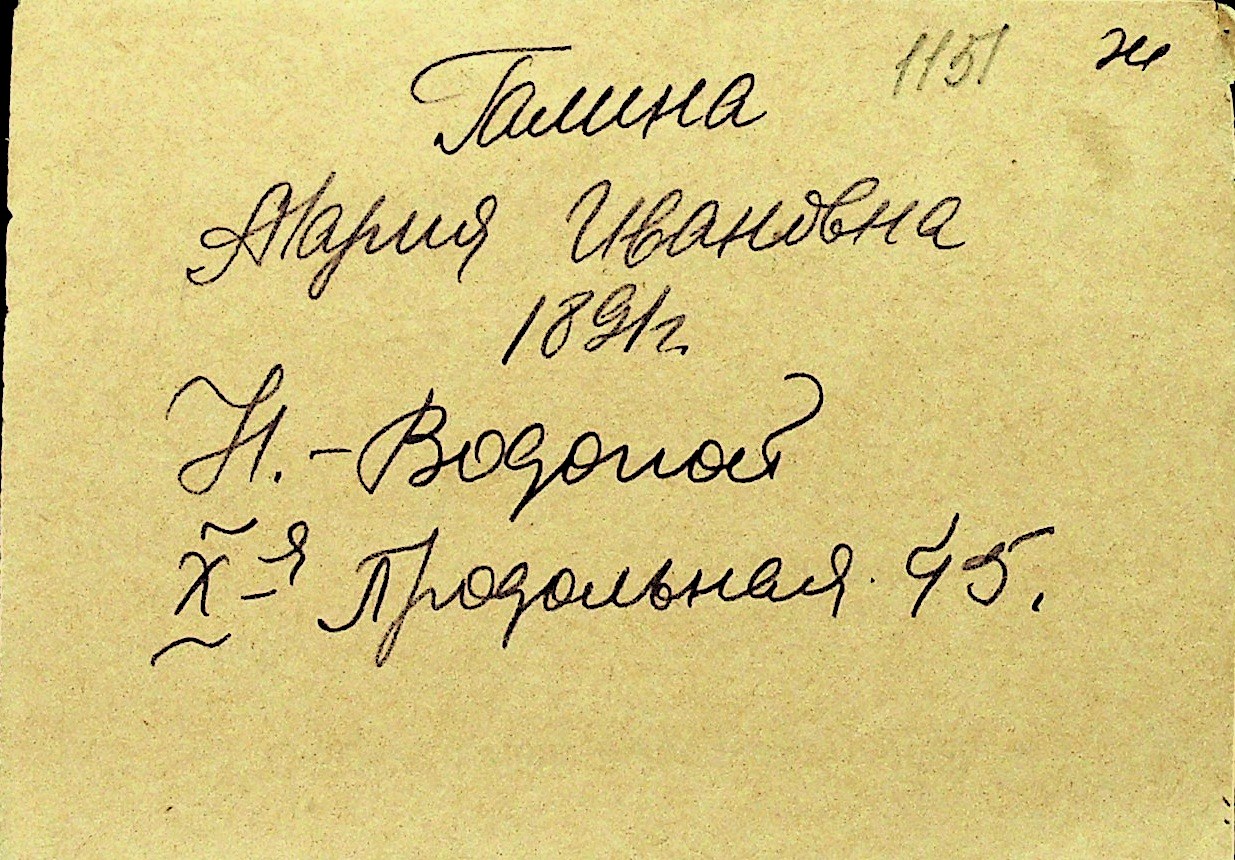 1151 ж
Галина
Мария Ивановна
1891г.
Н.-Водопой
X-я Продольная 45.